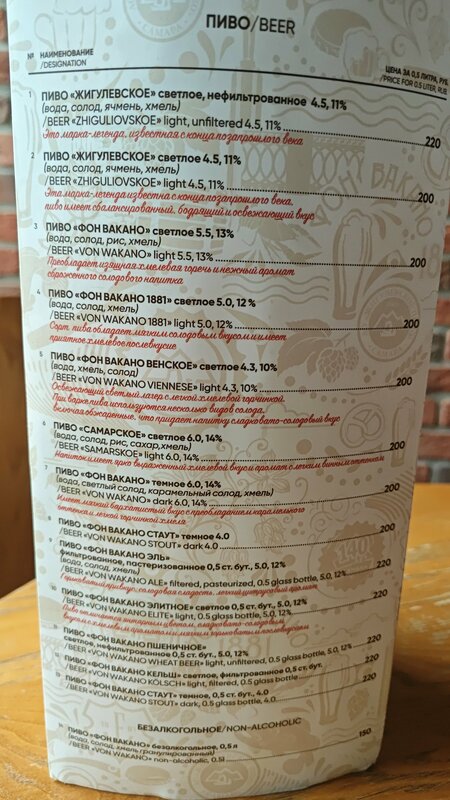 ПИВО/BEER
№ НАИМЕНОВАНИЕ
/DESIGNATION
ЦЕНА ЗА 0,5 ЛИТРА, РУБ.
/PRICE FOR 0.5 LITER, RUB.
1 ПИВО «ЖИГУЛЕВСКОЕ» светлое, нефильтрованное 4.5, 11%
(вода, солод, ячмень, хмель)
/BEER «ZHIGULIOVSKOE» light, unfiltered 4.5, 11% 220
Это марка-легенда, известная с конца позапрошлого века
2 ПИВО «ЖИГУЛЕВСКОЕ» светлое 4.5, 11%
(вода, солод, ячмень, хмель)
/BEER «ZHIGULIOVSKOE» light 4.5, 11% 200
Эта марка-легенда известна с конца позапрошлого века.
пиво имеет сбалансированный, бодрящий и освежающий вкус
3 ПИВО «ФОН ВАКАНО» светлое 5.5, 13%
(вода, солод, рис, хмель)
/BEER «VON WAKANO» light 5.5, 13% 200
Преобладает изящная хмелевая горечь и нежный аромат
сброженного солодового напитка
4 ПИВО «ФОН ВАКАНО 1881» светлое 5.0, 12 %
(вода, солод, хмель)
/BEER «VON WAKANO 1881» light 5.0, 12% 200
Сорт пива обладает мягким солодовым вкусом и имеет
приятное хмелевое послевкусие
5 ПИВО «ФОН ВАКАНО ВЕНСКОЕ» светлое 4.3, 10%
(вода, хмель, солод)
/BEER «VON WAKANO VIENNESE» light 4.3, 10% 200
Освежающий светлый лагер с легкой хмелевой горчинкой.
При варке пива используются несколько видов солода.
включая обжаренные, что придает напитку сладковато-солодовый вкус
6 ПИВО «САМАРСКОЕ» светлое 6.0, 14%
(вода, солод, рис, сахар, хмель)
/BEER «SAMARSKOE» light 6.0, 14% 200
Напиток имеет ярко выраженный хмелевой вкус и аромат с легким винным оттенком
7 ПИВО «ФОН ВАКАНО» темное 6.0, 14%
(вода, светлый солод, карамельный солод, хмель)
/BEER «VON WAKANO» dark 6.0, 14% 200
Имеет мягкий бархатистый вкус с преобладанием карамельного
оттенка и легкой горчинкой хмеля
8 ПИВО «ФОН ВАКАНО СТАУТ» темное 4.0
/BEER «VON WAKANO STOUT» dark 4.0 200
9 ПИВО «ФОН ВАКАНО ЭЛЬ»
фильтрованное, пастеризованное 0,5 ст. бут., 5.0, 12%
(вода, солод, хмель)
/BEER «VON WAKANO ALE» filtered, pasteurized, 0.5 glass bottle, 5.0, 12% 220
Горьковатый привкус, солодовая сладость, легкий цитрусовый аромат
10 ПИВО «ФОН ВАКАНО ЭЛИТНОЕ» светлое 0,5 ст. бут., 5.0, 12%
/BEER «VON WAKANO ELITE» light, 0.5 glass bottle, 5.0, 12% 220
Пиво отличается янтарным цветом, сладковато-солодовым
вкусом с хмелевым ароматом и мягким горьковатым послевкусием
11 ПИВО «ФОН ВАКАНО ПШЕНИЧНОЕ»
светлое, нефильтрованное 0,5 ст. бут., 5.0, 12%
/BEER «VON WAKANO WHEAT BEER» light, unfiltered, 0.5 glass bottle, 5.0, 12% 220
12 ПИВО «ФОН ВАКАНО КЕЛЬШ» светлое, фильтрованное, 0,5 ст. бут.
/BEER «VON WAKANO KÖLSCH» light, filtered, 0.5 glass bottle 220
13 ПИВО «ФОН ВАКАНО СТАУТ» темное, 0,5 ст. бут., 4.0
/BEER «VON WAKANO STOUT» dark, 0.5 glass bottle, 4.0 220
БЕЗАЛКОГОЛЬНОЕ/NON-ALCOHOLIC
14 ПИВО «ФОН ВАКАНО» безалкогольное, 0,5 л
(вода, солод, хмель гранулированный)
/BEER «VON WAKANO» non-alcoholic, 0.5l 150